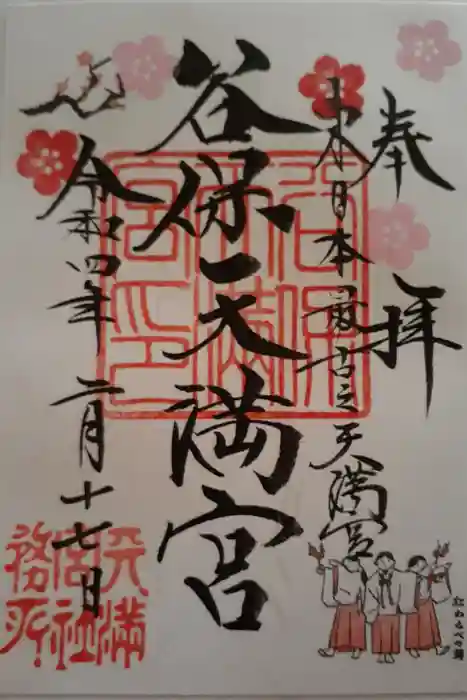 奉拝
東日本最古之天満宮
谷保天満宮
令和四年二月十七日
谷保天満宮印
天満宮社務所